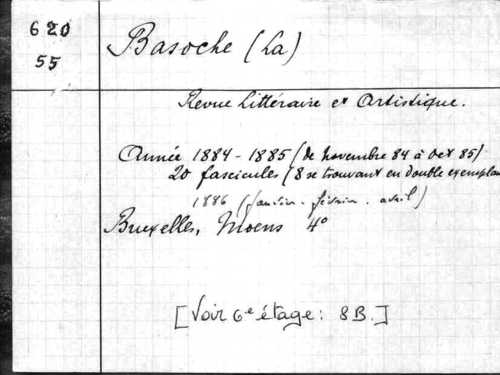 620
55
Basoche (La)
Revue Littéraire et Artistique.
Année 1884-1885 (de Novembre 84 à Oct 85)
20 fascicules (8 se trouvant en double exemplaire
1886 (janvier. février. avril)
Bruxelles, Moens 4°
[Voir 6e étage: 8B.]